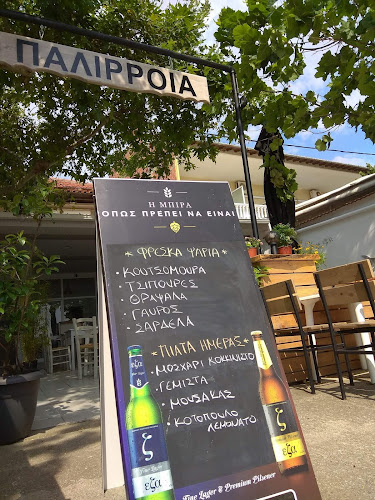 ΠΑΛΙΡΡΟΙΑ
Η ΜΠΙΡΑ
ΟΠΩΣ ΠΡΕΠΕΙ ΝΑ ΕΙΝΑΙ
*ΦΡΕΣΚΑ ΨΑΡΙΑ*
• ΚΟΥΤΣΟΜΟΥΡΑ
• ΤΣΙΠΟΥΡΕΣ
• ΘΡΑΨΑΛΑ
• ΓΑΥΡΟΣ
• ΣΑΡΔΕΛΑ
*ΠΙΑΤΑ ΗΜΕΡΑΣ*
• ΜΟΣΧΑΡΙ ΚΟΚΚΙΝΙΣΤΟ
• ΓΕΜΙΣΤΑ
• ΜΟUSΑΚΑΣ
• ΚΟΤΟΠΟΥΛΟ
ΛΕΜΟΝΑΤΟ
ζ
εζα
ζ
εζα
Fine Lager & Premium Pilsener